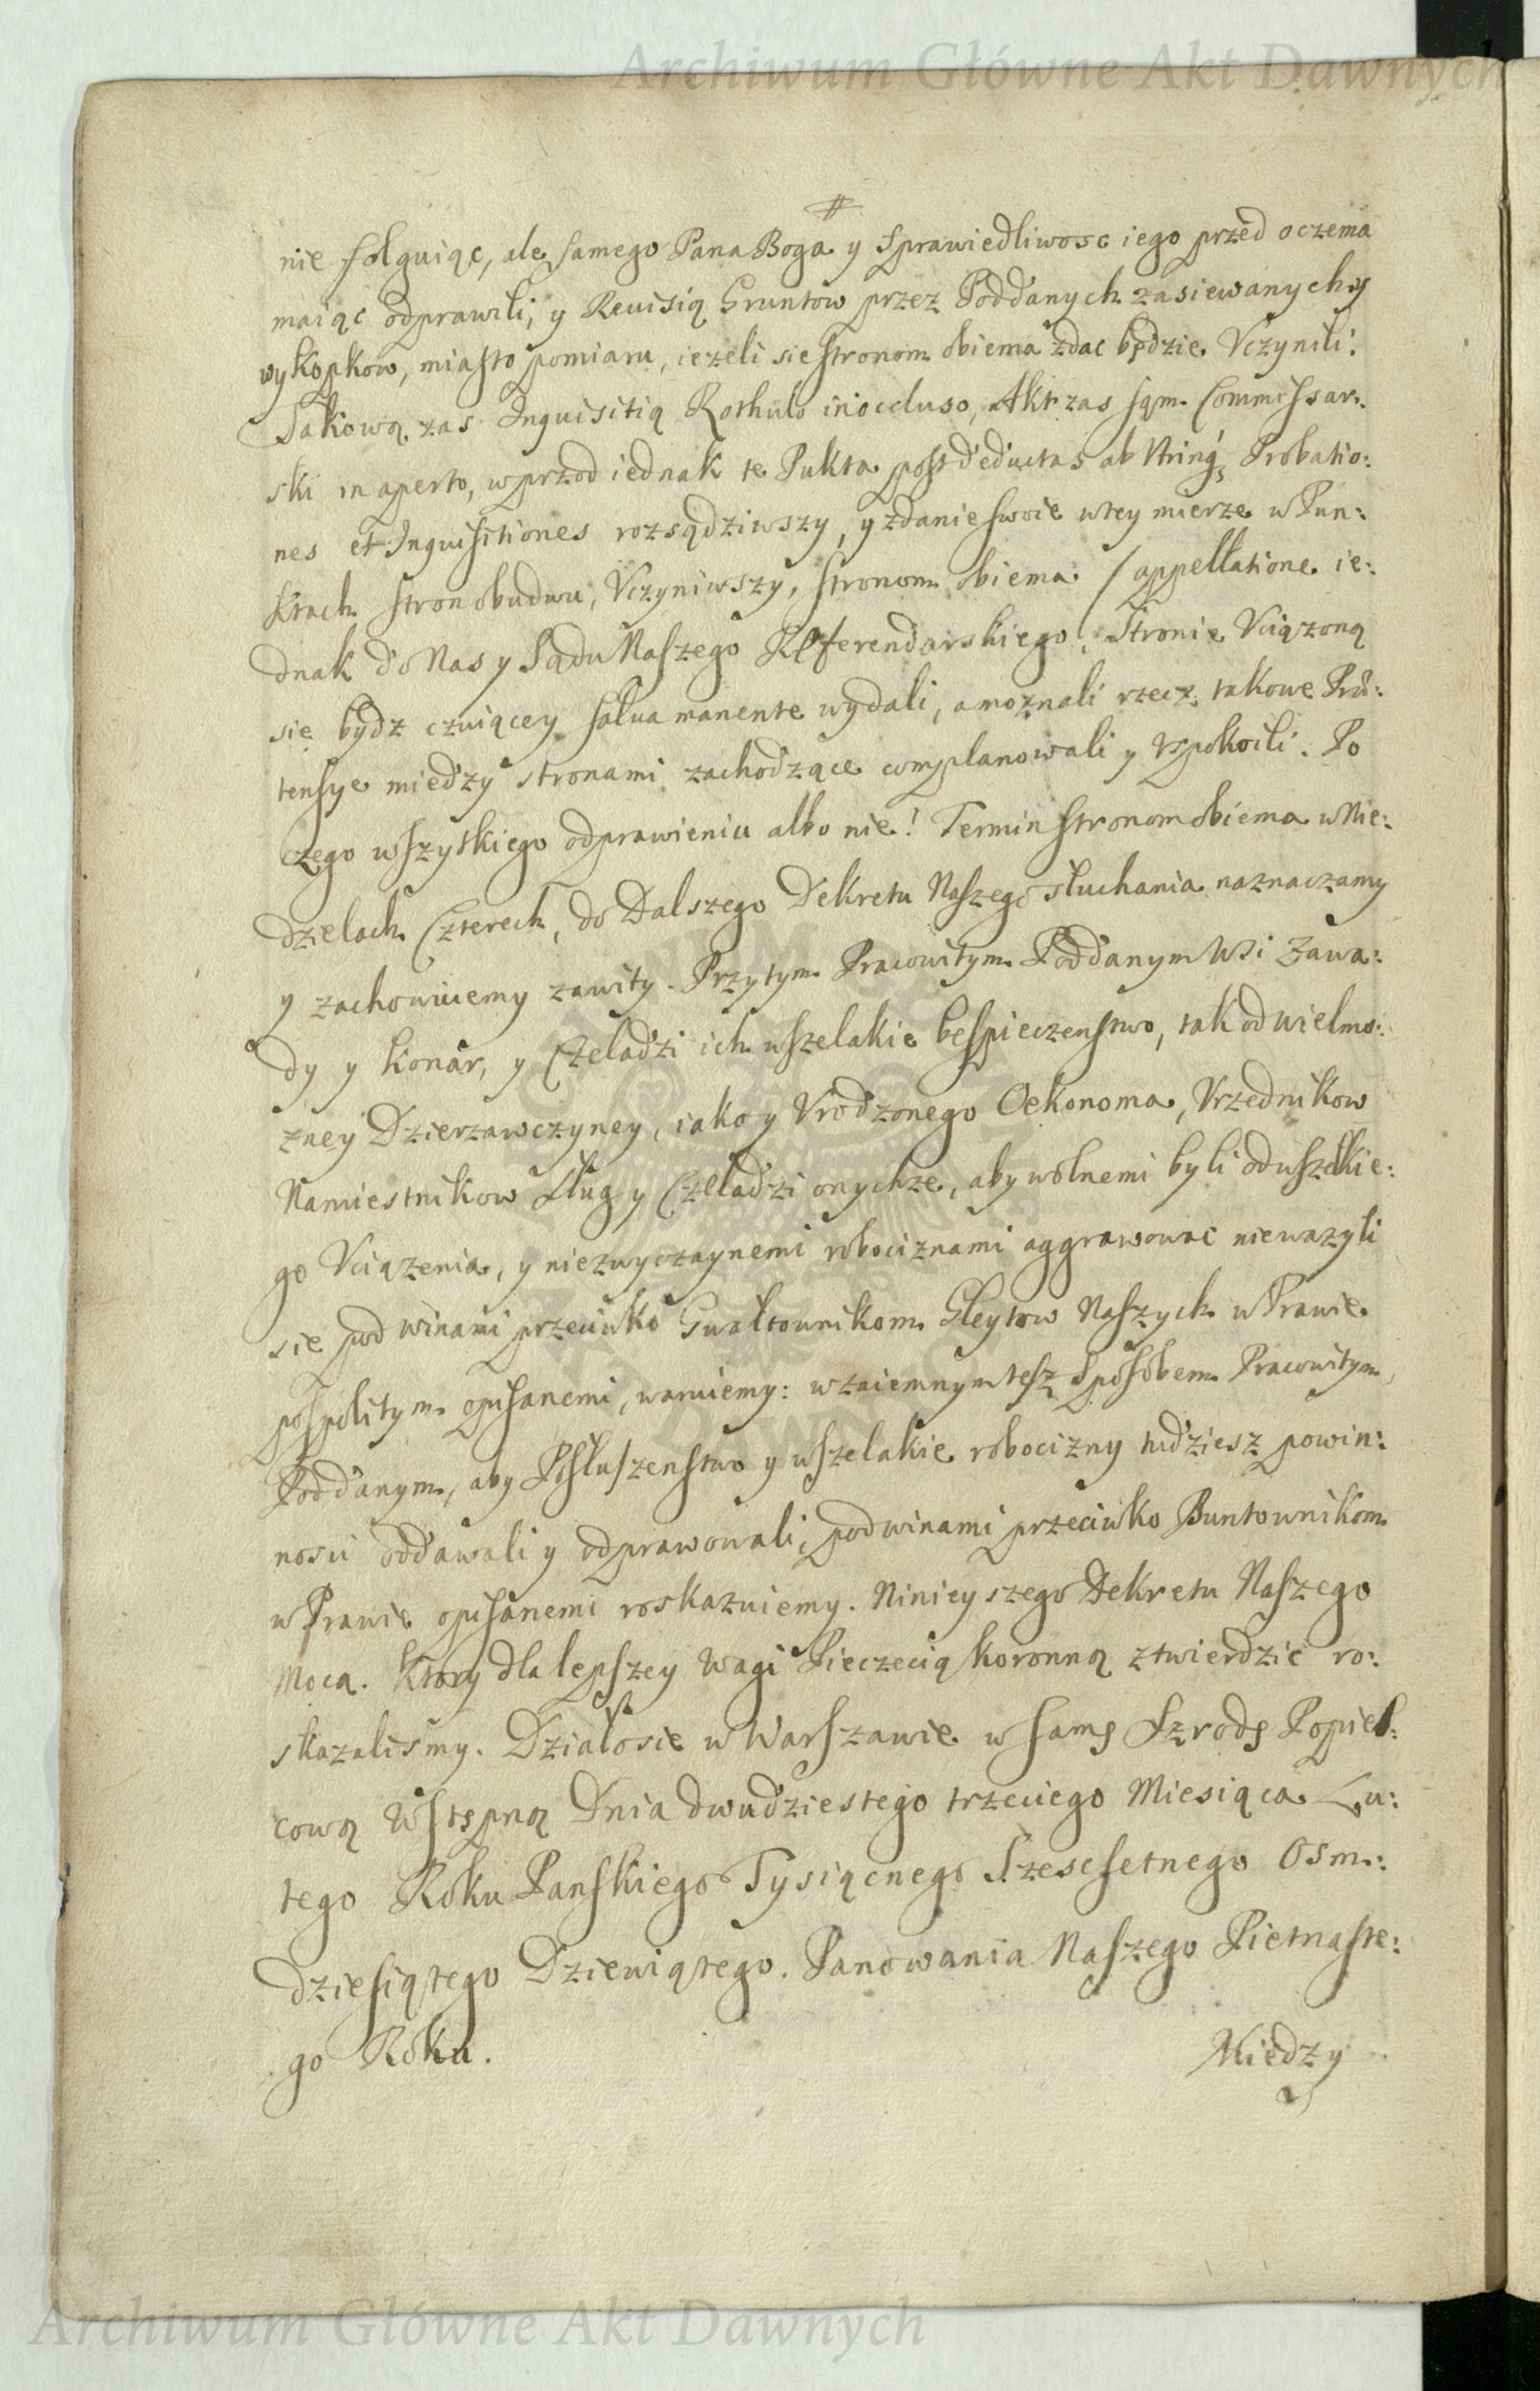 Archiwum Główne Akt Dawnych
nie folguiąc, ale samego Pana Boga y sprawiedliwosc iego przed oczema
maiąc odprawili, y Reuisią Gruntow przez Poddanych zasiewanych y
wykopkow, miasto pomiaru, iezeli sie stronom obiema zdac będzie Vczynili.
Takową zas Inquisitią Rothulo in occluso, Akt zas sąm Commissar:
ski in aperto, wprzod iednak te Pukta post deductas ab utrinq, Probatio:
nes et Inquisitiones rozsądziwszy, y zdanie swoie w tey mierze w Pun:
ktach stron obudwu, Vczyniwszy, stronom obiema / appellatione ie:
dnak do Nas y Sądu Naszego Referendarskiego, Stronie Vciązoną
sie bydz czuiącey salua manente wydali, a moznali rzecz takowe Prae:
tensye między stronami zachodzące complanowali y Vspokoili. Po
czego wszytkiego odprawieniu albo nie! Termin stronom obiema w Nie:
dzelach Czterech, do Dalszego Dekretu Naszego słuchania naznaczamy
y zachowuiemy zawity. Przytym Pracowitym Poddanym Wsi Zawa:
dy y Konar, y Czeladzi ich wszelakie bespieczenstwo, tak od wielmo:
zney Dzierzawczyney, iako y Vrodzonego Oekonoma, Vrzednikow
Namiestnikow Sług y Czeladzi onychze, aby wolnemi byli od wszelkie:
go Vciązenia, y niezwyczaynemi robociznami aggrawowac niewazyli
sie pod winami przeciwko Gwałtownikom Gleytow Naszych w Prawie
pospolitym opisanemi, waruiemy: wzaiemnym tesz sposobem Pracowitym
Poddanym, aby Posłuszenstwo y wszelakie robocizny tudziesz powin:
nosci oddawali y odprawowali, pod winami przeciwko Buntownikom
w Prawie opisanemi roskazuiemy. Ninieyszego Dekretu Naszego
Mocą. Ktory dla lepszey Wagi Pieczecią Koronną ztwierdzic ro:
skazalismy. Działo sie w Warszawie w samę Szrodę Popiel:
cową Wstępną Dnia dwudziestego trzeciego Miesiąca Lu:
tego Roku Panskiego Tysiącnego Szescsetnego Osm:
dziesiątego Dziewiątego. Panowania Naszego Pietnaste:
go Roku.
Między
Archiwum Główne Akt Dawnych